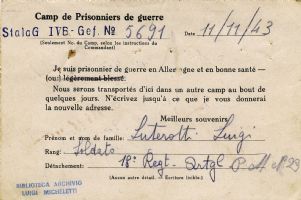 Camp de Prisonniers de guerre
Stalag IVB-Gef. № 5691 Date 11/11/43
(Seulement No. du Camp, selon les instructions du
Commandant)
Je suis prisonnier de guerre en Allemagne et en bonne santé —
(ou: légèrement blessé.
Nous serons transportés d'ici dans un autre camp au bout de
quelques jours. N'écrivez jusqu'à ce que je vous donnerai
la nouvelle adresse.
Meilleurs souvenirs
Prénom et nom de famille: Luigi
Rang: Soldato
Détachement: 18° Regt. № 29
(Aucun autre détail. — Ecriture lisible.)
BIBLIOTECA ARCHIVIO
LUIGI MICHELETTI